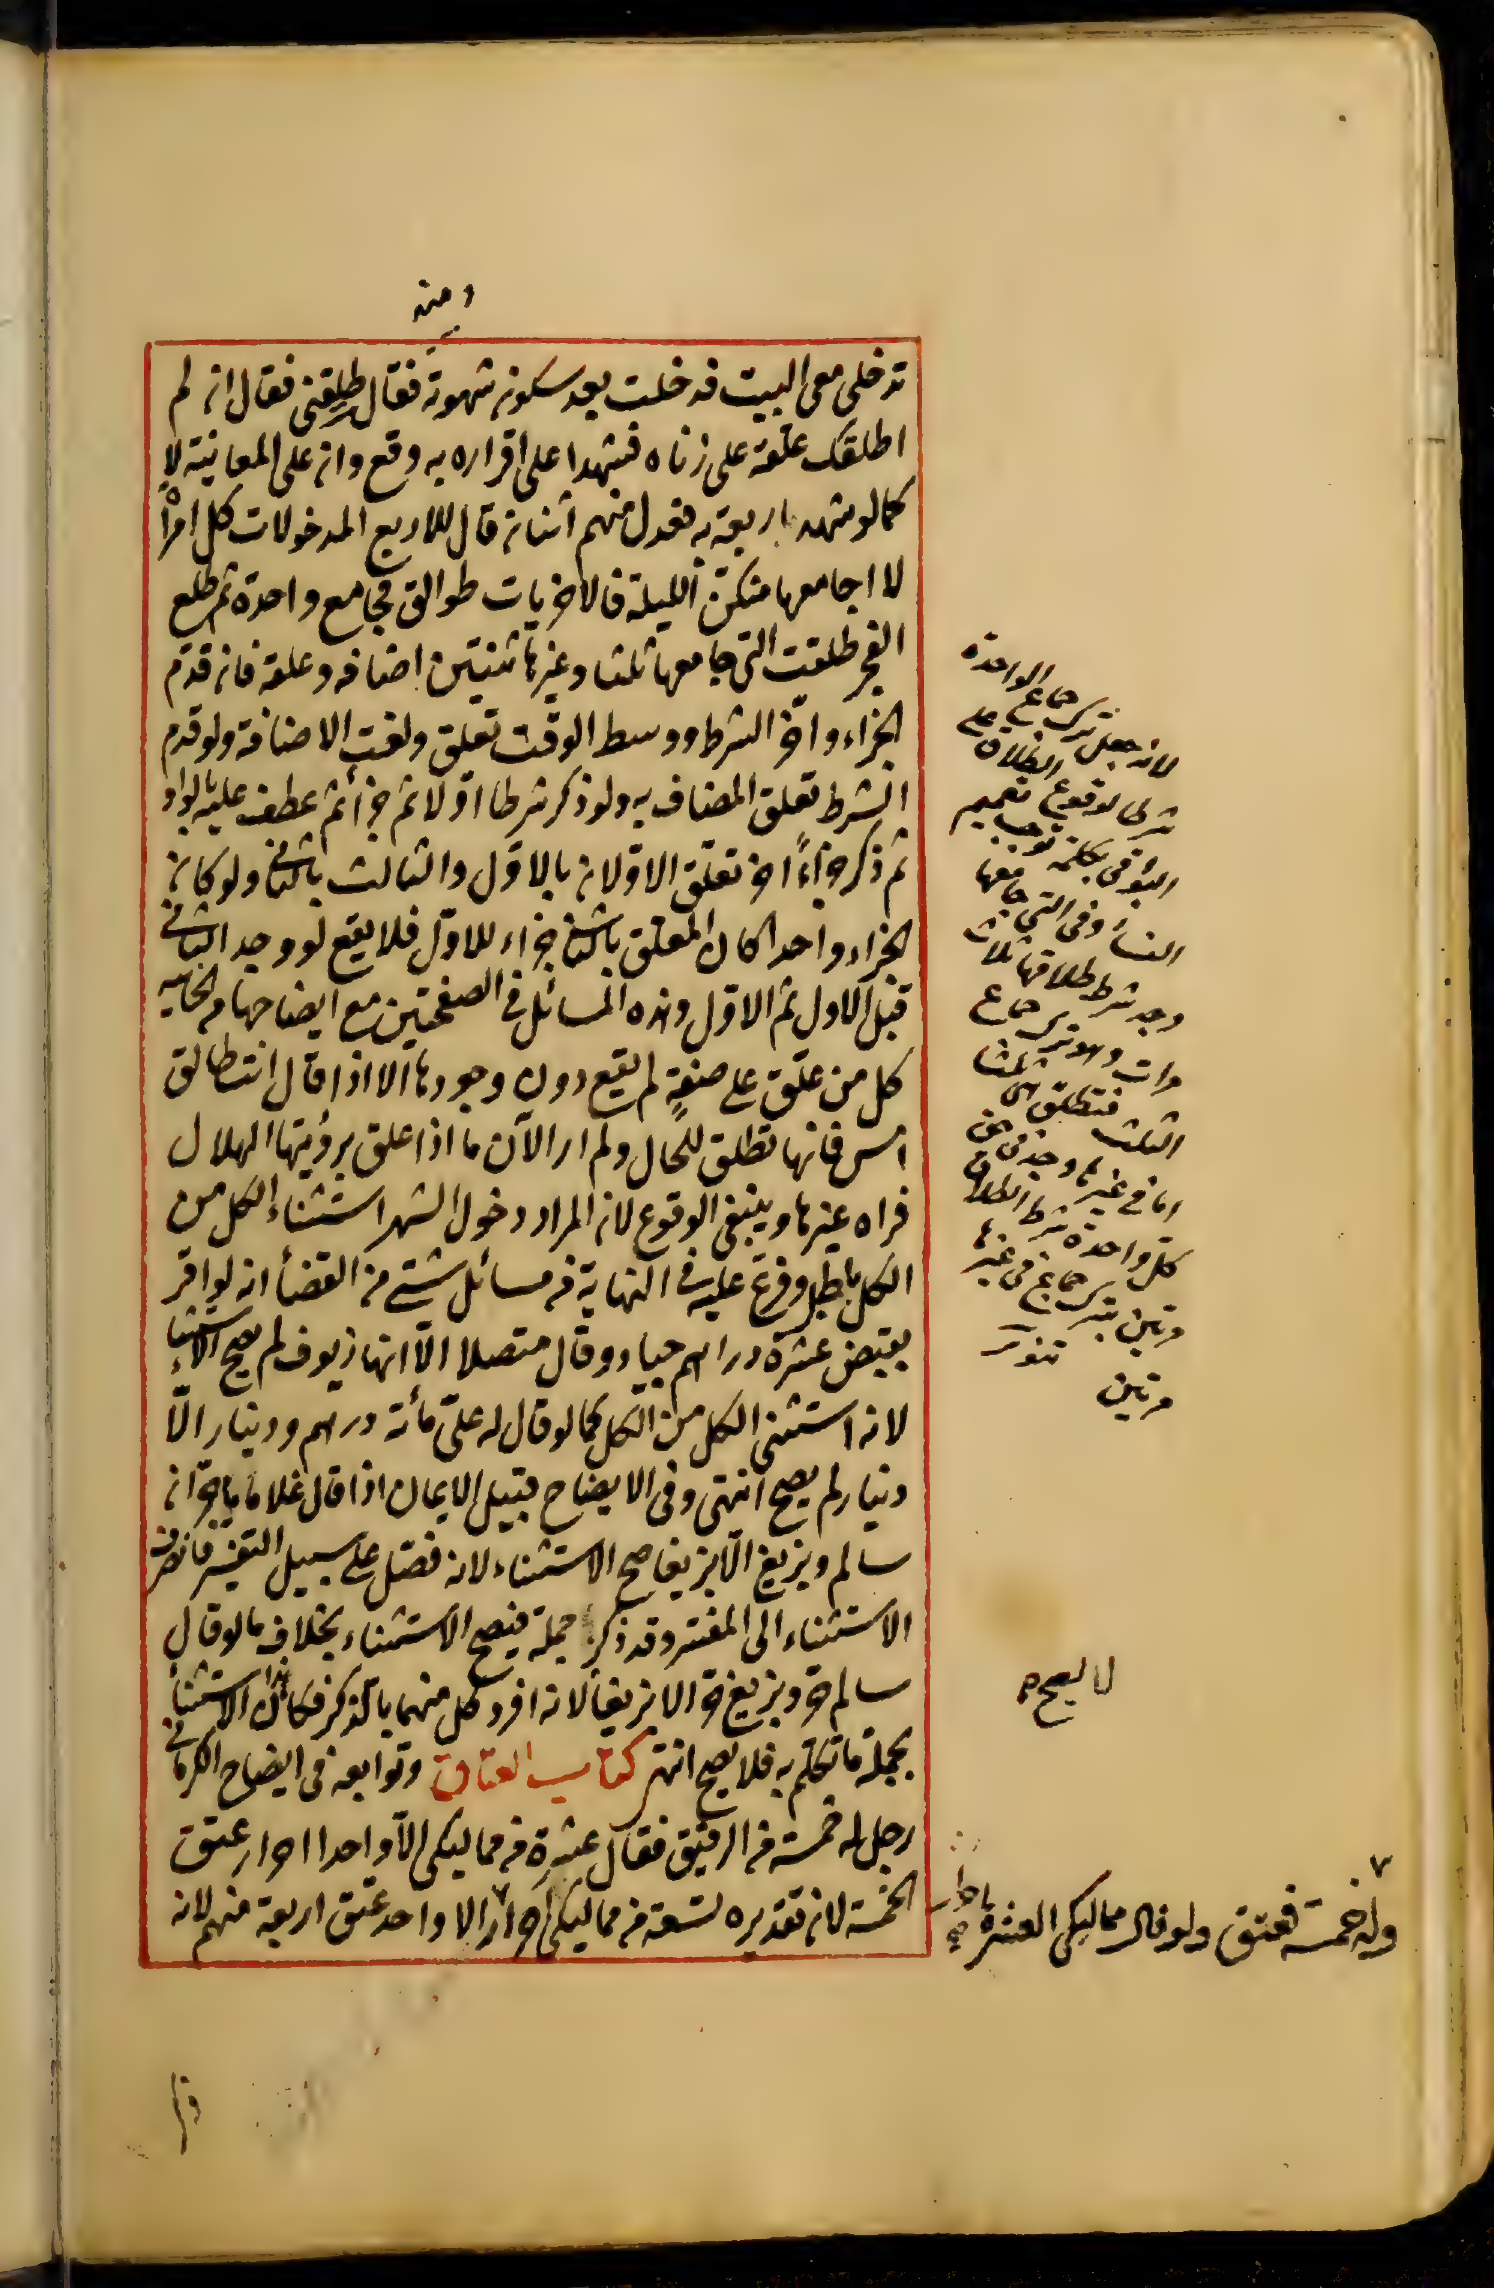 ومنه
تدخلي معي البيت فدخلت بعد سكون شهوته فقال طلقني فقال ان لم
اطلقك علقه على زناه فشهدا على اقراره به وقع وان على المعاينة لا
كما لو شهد اربعة به فعدل منهم اثنان قال للاربع المدخولات كل امرأة
لا اجامعها منكن الليلة فالاخريات طوالق فجامع واحدة ثم طلع
الفجر طلقت التي جامعها ثلثا وغيرها ثنتين اضافه وعلقه فان قدم
الجزاء واخر الشرط ووسط الوقت تعلق ولغت الاضافة ولو قدم
الشرط تعلق المضاف به ولو ذكر شرطا اولا ثم جزأ ثم عطف عليه بالواو
ثم ذكر جزاءً اخر تعلق الاولان بالاول والثالث بالثاني ولو كان
الجزاء واحدا كان المعلق بالثاني جزاء للاول فلا يقع لو وجد الثاني
قبل الاول ثم الاول وهذه المسائل في الصفحتين مع ايضاحها من الخانيه
كل من علق على صفةٍ لم يقع دون وجودها الا اذا قال انت طالق
امس فانها تطلق للحال ولم ار الآن ما اذا علق برؤيتها الهلال
فراه غيرها وينبغي الوقوع لان المراد دخول الشهر استثناء الكل من
الكل باطل وفرع عليه في النهاية في مسائل شتى من القضأ انه لو اقر
بقبض عشرة دراهم جياد وقال متصلا الا انها زيوف لم يصح الاستثناء
لانه استثنى الكل من الكل كما لو قال له علي مأئة درهم ودينار الا
دينار لم يصح انتهى وفي الايضاح قبيل الايمان اذا قال غلاماي حران
سالم وبزيغ الا بزيغا صح الاستثناء لانه فصل على سبيل التفسير فانصرف
الاستثناء الى المفسر وقد ذكر جملة فيصح الاستثناء بخلاف ما لو قال
سالم حر وبزيغ حر الا بزيغا لانه افرد كل منهما بالذكر فكان هذا الاستثناء
بجملة ما تكلم به فلا يصح انتهى كتاب العتاق وتوابعه في ايضاح الكرماني
رجل له خمسة من الرقيق فقال عشرة من مماليكي الا واحدا احرار عتق
الخمسة لان تقديره تسعة من مماليكي احرار الا واحد عتق اربعة منهم لانه
لانه جعل ترك جماع الواحدة
شرطا لوقوع الطلاق على
البواقي بكلمة توجب تعميم
النساء وفي التي جامعها
وجد شرط طلاقها ثلاث
مرات وهو ترك جماع
الثلث فتطلق ثلثا
اما في غيرها وجد في حق
كل واحدة شرط الطلاق
مرتين بترك جماع في غيرها
مرتين تنوير
لا يصح صح
وله خمسة فعتق ولو قال مماليكي العشرة احرار صح